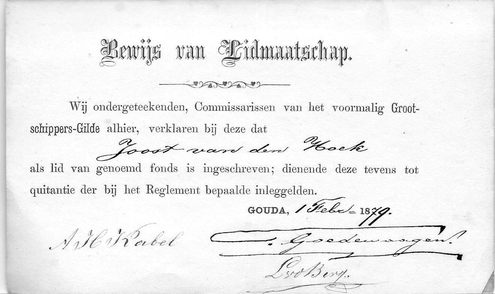 Bewijs van Lidmaatschap.
Wij ondergeteekenden, Commissarissen van het voormalig Groot-
schippers-Gilde alhier, verklaren bij deze dat
Joost van den Hoek
als lid van genoemd fonds is ingeschreven; dienende deze tevens tot
quitantie der bij het Reglement bepaalde inleggelden.
GOUDA, 1 Febr. 1879.
A H Kabel
Goedewaagen
LvdBerg.